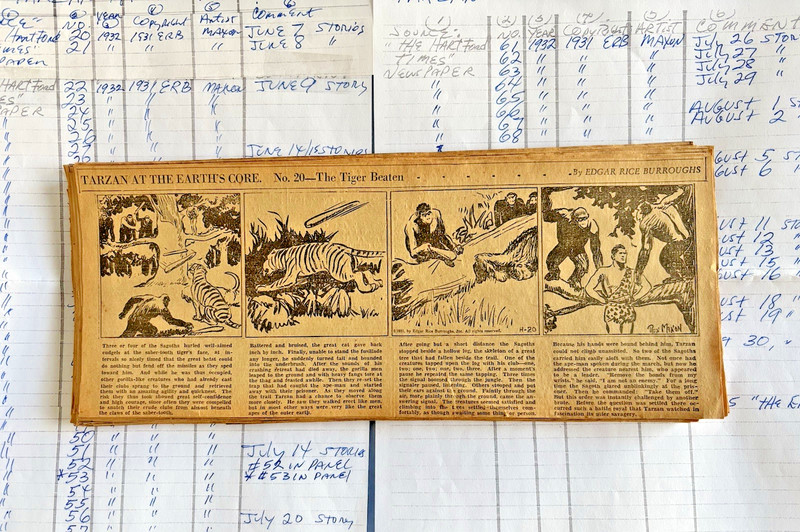 No. YEAR COPYRIGHT Artist Comment
HARTFORD 20 1932 1931 ERB MAXON JUNE 7 STORIES
21 " " " JUNE 8 "
HARTFORD 22 1932 1931 ERB MAXON JUNE 9 STORY
23 " " "
24 " "
25
26
JUNE 14/15 STORIES
(1) (2) (3) (4) (5) (6)
SOURCE: NO. YEAR COPYRIGHT ARTIST COMMENT
"THE HARTFORD 61 1932 1931 ERB MAXON July 26 STORY
TIMES" 62 " " " July 27 "
NEWSPAPER 63 " " " July 28 "
" 64 " " " July 29 "
" 65 " " "
" 66 " " " AUGUST 1
" 67 " " " AUGUST 2
" 68 " " "
TARZAN AT THE EARTH'S CORE. No. 20—The Tiger Beaten - - - - - - By EDGAR RICE BURROUGHS
by Edgar Rice Burroughs, Inc. All rights reserved.
4-20
Rex MAXON
Three or four of the Sagoths hurled well-aimed
cudgels at the saber-tooth, tiger's face, at in-
tervals so nicely timed that the great beast could
do nothing but fend off the missiles as they sped
toward him. And while he was thus occupied,
other gorilla-like creatures who had already cast
their clubs sprang to the ground and retrieved
them with an amazing agility.
risk they thus took showed great self-confidence
and high courage, since often they were compelled
to snatch their crude clubs from almost beneath
the claws of the saber-tooth.
Battered and bruised, the great cat gave back
inch by inch. Finally, unable to stand the fusillade
any longer, he suddenly turned tail and bounded
into the underbrush. After the sounds of his
crashing retreat had died away, the gorilla men
leaped to the ground and with angry fangs tore at
the flag and feasted avidly. Then they reset the
trap that had caught the ape-man and started
away with their prisoner. As they moved along
the trail Tarzan had a chance to observe them
more closely. He saw they walked erect like men,
but in most other ways were very like the great
apes of the outer earth.
After going but a short distance the Sagoths
stopped beside a hollow log, the skeleton of a great
tree that had fallen beside the trail. One of the
creatures tapped upon the log with his club—one,
two; one, two; one, two, three. After a moment's
pause he repeated the same tapping. Three times
the signal boomed through the jungle. Then the
signaler paused, listening. Others stooped and put
their ears against the ground. Faintly through the
air, more plainly through the ground, came the an-
swering signal. The creatures seemed satisfied and
climbing into the trees settling themselves com-
fortably, as though awaiting some thing or person.
Because his hands were bound behind him, Tarzan
could not climb unassisted. So two of the Sagoths
carried him easily aloft with them. Not once had
Tarzan spoken during the march, but now he
addressed the creature nearest him, who appeared
to be a leader. "Remove the bonds from my
wrists," he said, "I am not an enemy." For a long
time the Sagoth glared unblinkingly at the
prisoner. Then he commanded
But this order was instantly challenged by another
brute. Before the question was settled there oc-
curred such a battle royal that Tarzan watched in
fascination its utter savagery.
50
51
52
*53
54
55
56
57
July 14 STORIES
#52 IN PANEL
* #53 IN PANEL
July 20 STORY